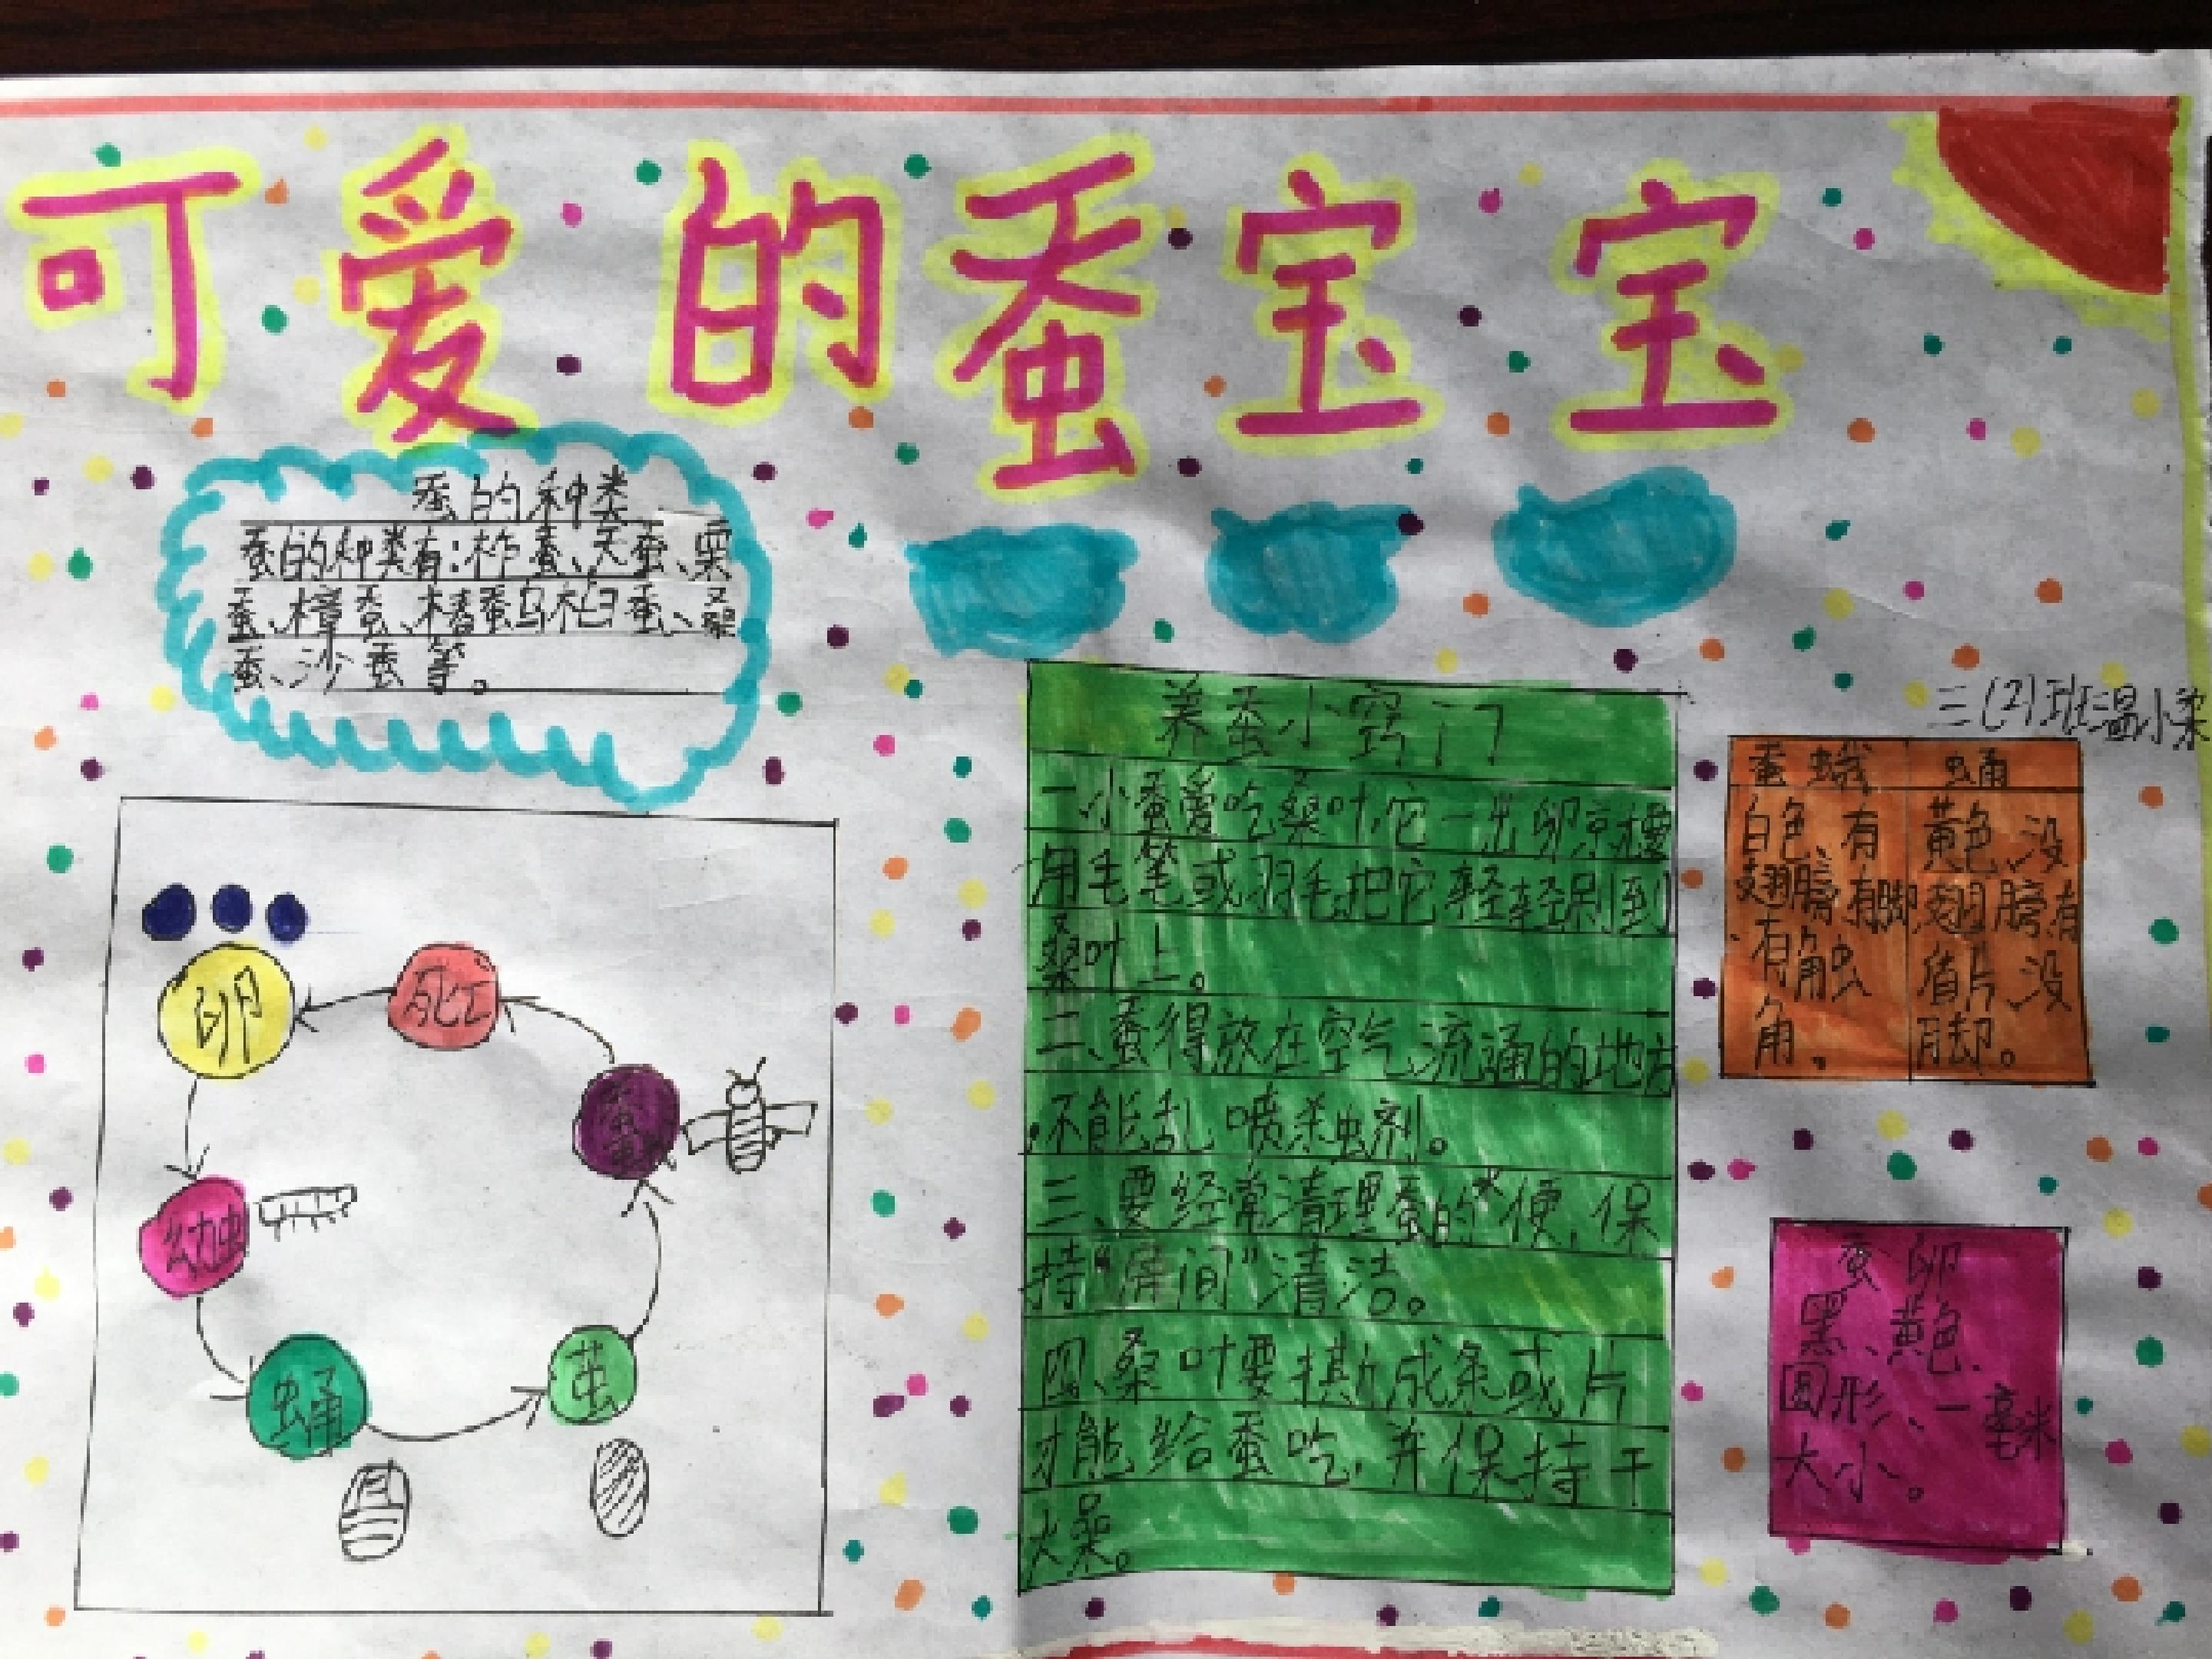 可爱的蚕宝宝
蚕的种类
蚕的种类有:柞蚕、天蚕、栗
蚕、樟蚕、樗蚕乌桕蚕、桑
蚕、沙蚕等。
卵
死亡
幼虫
蛹
茧
养蚕小窍门
一、小蚕爱吃桑叶,它一出卵京樱
用毛笔或羽毛把它轻轻刷到
桑叶上。
二、蚕得放在空气流通的地方
,不能乱喷杀虫剂。
三、要经常清理蚕的大便,保
持“房间”清洁。
四、桑叶要撕成条或片
才能给蚕吃,并保持干
燥。
三(2)班温小柔
蚕蛾
白色、有
翅膀、有脚
、有触
角。
蛹
黄色、没
翅膀有
盾片没
脚。
蚕卵
黑、黄色、
圆形、一毫米
大小。